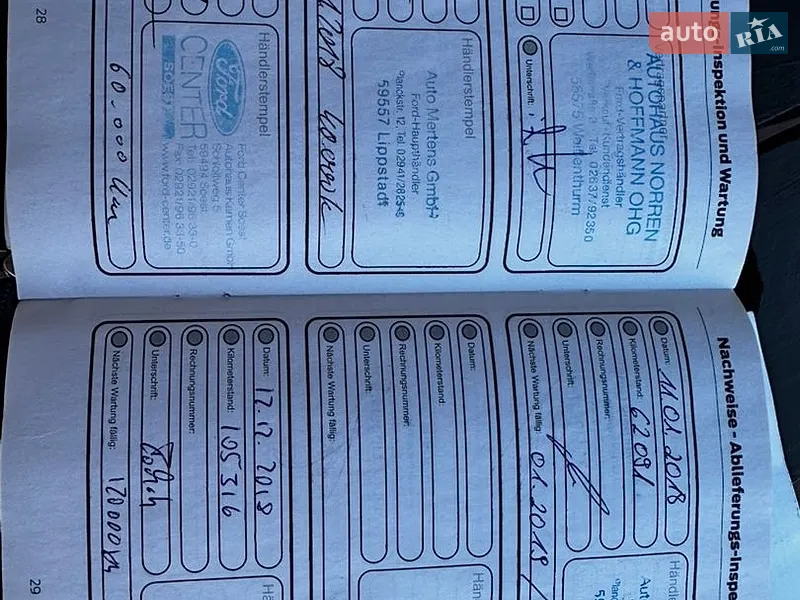 auto RIA .com
ungs-Inspektion und Wartung
AUTOHAUS NORREN
& HOFFMANN OHG
Ford-Vertragshändler
Tel. 02637/92350
Weißenthurm
Unterschrift:
Händlerstempel
Auto Mertens GmbH
Ford-Haupthändler
Planckstr. 12, Tel. 02941/28254-6
59557 Lippstadt
Händlerstempel
Ford
CENTER
SOEST
Ford Center Soest
Autohaus Kamen GmbH
59494 Soest
www.ford-center.de
60.000 km
28
Nachweise - Ablieferungs-Inspe
Datum: 11.01.2018
Kilometerstand: 62091
Rechnungsnummer:
Unterschrift:
Nächste Wartung fällig: 01.2019 /
Händlers
Aut
Datum:
Kilometerstand:
Rechnungsnummer:
Unterschrift:
Nächste Wartung fällig:
Hän
Datum: 17.12.2018
Kilometerstand: 105316
Rechnungsnummer:
Unterschrift:
Nächste Wartung fällig: 120000km
Hä
29